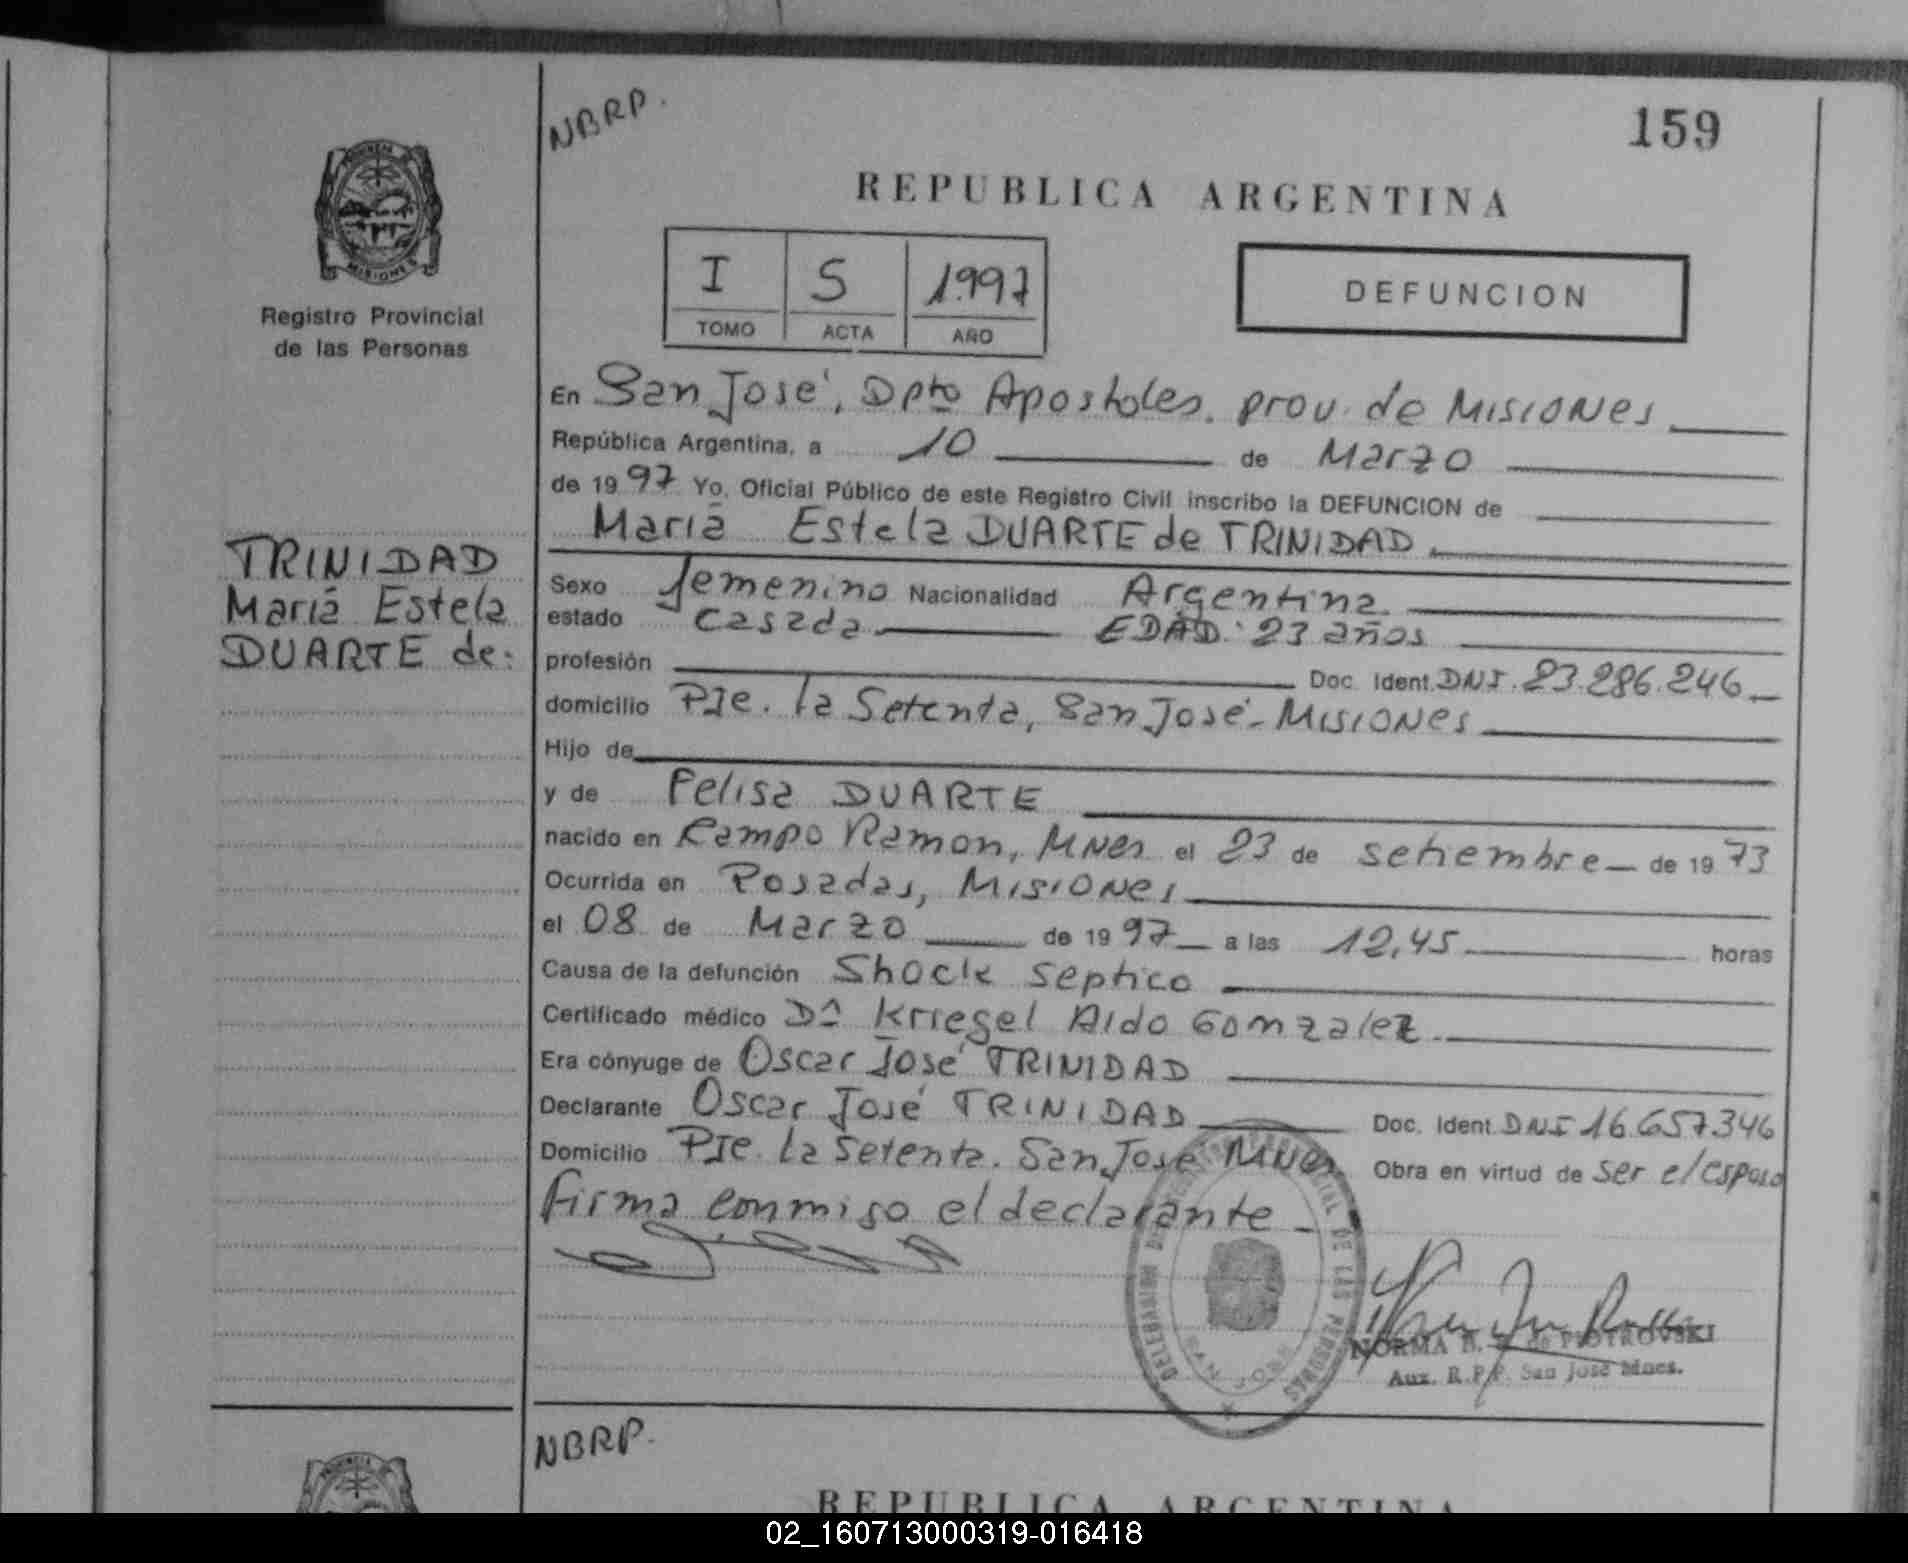 NBRP.
159
REPUBLICA ARGENTINA
PROVINCIA DE
MISIONES
Registro Provincial
de las Personas
I S 1.997
TOMO ACTA AÑO
DEFUNCION
En San José, Dpto Apostoles. prov. de MISIONES
República Argentina, a 10 de Marzo
de 1997 Yo, Oficial Público de este Registro Civil inscribo la DEFUNCION de
Maria Estela DUARTE de TRINIDAD.
TRINIDAD
Maria Estela
DUARTE de:
Sexo femenino Nacionalidad Argentina.
estado casada EDAD: 23 años
profesión Doc. Ident. DNI. 23.286.246
domicilio PJe. la Setenta, San José - MISIONES
Hijo de
y de Felisa DUARTE
nacido en Campo Ramon, MNes el 23 de setiembre de 1973
Ocurrida en Posadas, MISIONES
el 08 de Marzo de 1997 a las 12,45 horas
Causa de la defunción Shock septico
Certificado médico Dr Kriegel Aldo Gonzalez.
Era cónyuge de Oscar José TRINIDAD
Declarante Oscar José TRINIDAD Doc. Ident. DNI 16.657.346
Domicilio PJe. la Setenta. San José MNes Obra en virtud de ser el esposo
firma conmigo el declarante
SAN JOSE
NORMA B. de PIOTROVSKI
Aux. R.P.P. San José Mnes.
NBRP.
REPUBLICA ARGENTINA
02_160713000319-016418